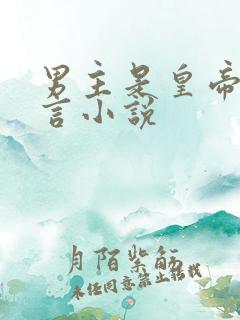 男主是皇帝
言小说
月陌紫筋
未经同意禁止转载